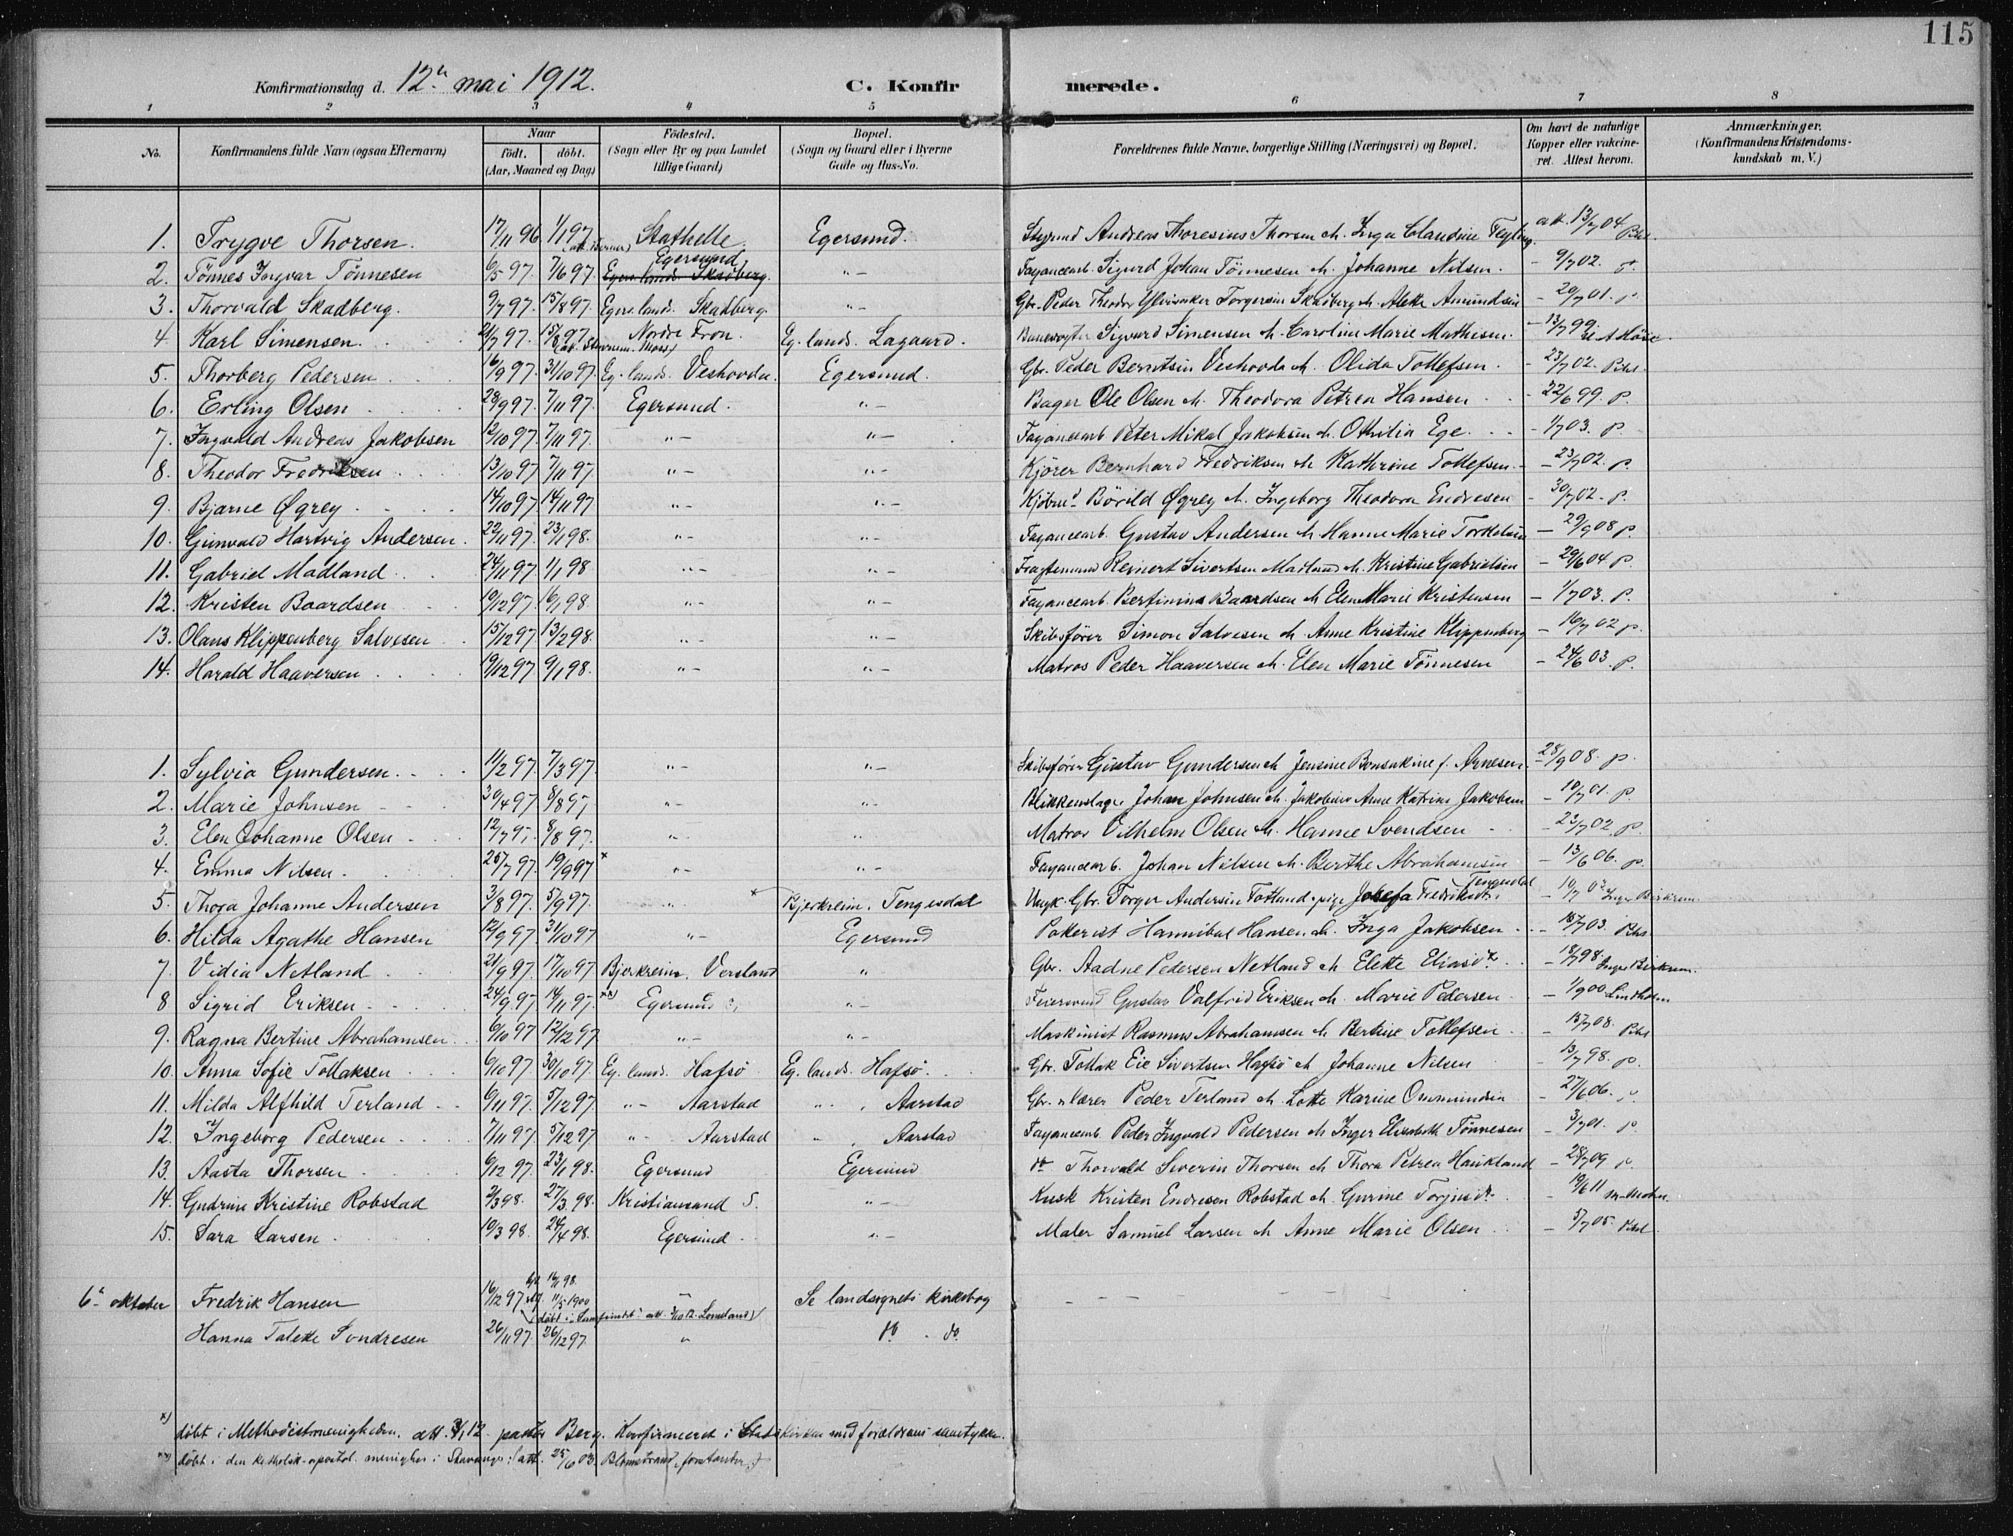 115
Konfirmationsdag d. 12te mai 1912. C. Konfirmerede.
1 2 3 4 5 6 7 8
No. Konfirmandens fulde Navn (ogsaa Efternavn) Naar födt. döbt. (Aar, Maaned og Dag) Födested. (Sogn eller By og paa Landet tillige Gaard) Bopæl. (Sogn og Gaard eller i Byerne Gade og Hus-No. Forældrenes fulde Navne, borgerlige Stilling (Næringsvei) og Bopæl. Om havt de naturlige Kopper eller vakcineret. Attest herom. Anmærkninger. (Konfirmandens Kristendomskundskab m. V.)
1. Trygve Thorsen. 17/11 96 1/1 97 Stathelle. Egersund. Andreas Thoresius Thorsen & Inga Claudine Feyling. att. 13/7 04
2. Tönnes Ingvar Tönnesen 6/5 97. 7/6 97. Egersund Egers. lands. Skadberg. "- Fayancearb. Sigurd Johan Tönnesen & Johanne Nilsen. - 9/7 02. p.
3. Thorvald Skadberg. 9/7 97. 15/8 97. Egers. lands. Skadberg. "- Gbr. Peder Theodor Torgersen Skadberg & Amundsen - 20/7 01.
4 Karl Simensen. 21/7 97. 15/8 97 Nordre Fron. Eg. lands. Lagaard. Banevogter Sigvard Simensen & Caroline Marie Mathisen. - 13/7 99
5. Thorberg Pedersen 16/9 97. 31/10 97. Eg. lands. Veshovda. Egersund. Gbr. Peder Berntsen Veshovda & Olida Tollefsen. - 23/7 02.
6. Erling Olsen 28/9 97. 7/11 97. Egersund. "- Bager Ole Olsen & Theodora Petrea Hansen - 22/6 99. p.
7. Ingvald Andreas Jakobsen 12/10 97. 7/11 97. "- "- Fayancearb Peter Mikal Jakobsen & Othilia Ege. - 1/7 03. p.
8. Theodor Fredriksen 13/10 97 7/11 97. "- "- Kjörer Bernhard Fredriksen & Kathrine Tollefsen. - 23/7 02. p.
9. Bjarne Øgrey. 14/10 97. 14/11 97 "- "- Börild Øgrey & Ingeborg Theodora Endresen - 30/7 02. p.
10. Gunvald Hartvig Andersen. 22/11 97. 23/1 98. "- "- Fayancearb. Gustav Andersen & Hanne Marie Torkelsen - 29/9 08 p.
11. Gabriel Madland. 24/11 97 1/1 98 "- "- Fragtemand Reinert Sivertsen Madland & Kristine Gabrielsen - 29/6 04 p.
12. Kristen Baardsen 19/12 97. 16/1 98. "- "- Fayancearb. Bertinius Baardsen & Elen Marie Kristensen - 1/7 03. p.
13. Olaus Klippenberg Salvesen 15/12 97 13/2 98. "- "- Skibsförer Simon Salvesen & Anne Kristine Klippenberg - 16/7 02 p.
14. Harald Haaversen 19/12 97. 9/1 98. "- "- Matros Peder Haaversen & Elen Marie Tönnesen - 24/6 03. p.
1. Sylvia Gundersen. 11/2 97. 7/3 97. "- "- Skibsförer Gustav Gundersen & Jensine f. Arnesen. - 28/9 08. p.
2. Marie Johnsen 30/4 97 8/8 97. "- "- Blikkenslager Johan Johnsen & Jakobine Anne Katrine Jakobsen - 10/7 01. p.
3. Elen Johanne Olsen 12/7 97. 8/8 97. "- "- Matros Vilhelm Olsen & Hanne Svendsen - 23/7 02. p.
4. Emma Nilsen. 25/7 97. 19/9 97 * "- "- Fayancearb. Johan Nilsen & Berthe Abrahamsen - 13/6 06. p.
5. Thora Johanne Andersen 3/8 97. 5/9 97. " * Bjerkreim. Tengesdal Ungk. Gbr. Torger Andersen Totland & pige Josefa Fredriksdt. Tengesdal - 10/7 02
6. Hilda Agathe Hansen 12/9 97. 31/10 97 "- Egersund Hannibal Hansen & Inga Jakobsen - 15/7 03.
7. Vidia Netland 21/9 97. 17/10 97 Bjerkreim. Versland " Gbr. Aadne Pedersen Netland & Elette Eliasdt. - 18/7 98
8 Sigrid Eriksen 24/9 97. 14/11 97. **) Egersund "- Feiersvend Gustav Valfrid Eriksen & Marie Pedersen - 1/9 00 Lindholm
9. Ragna Bertine Abrahamsen 9/10 97 12/12 97. "- "- Maskinist Rasmus Abrahamsen & Bertine Tollefsen - 15/7 08.
10. Anna Sofie Tollaksen 9/10 97 30/10 97. Eg. lands. Hafsö Eg. lands. Hafsö. Gbr. Tollak Eie Sivertsen Hafsö & Johanne Nilsen - 13/7 98. p.
11. Milda Alfhild Terland 6/11 97. 5/12 97. "- Aarstad "- Aarstad Gbr. & lærer Peder Terland & Lotte Karine Ommundsen - 27/6 06.
12. Ingeborg Pedersen 7/11 97. 5/12 97 "- Aarstad " Aarstad Fayancearb. Peder Ingvald Pedersen & Inger Elisabeth Tönnesen - 3/7 01. p.
13. Aasta Thorsen 6/12 97. 23/1 98. Egersund Egersund do Thorvald Severin Thorsen & Thora Petrea Haukland - 28/7 09 p.
14. Gudrun Kristine Robstad 2/3 98. 27/3 98. Kristiansand S. "- Kusk Kristen Endresen Robstad & Gurine Torjusdt. - 19/6 11
15. Sara Larsen 10/3 98. 24/4 98. Egersund. "- Maler Samuel Larsen & Anne Marie Olsen - 5/7 05.
6te oktober Fredrik Hansen 16/12 97 11/5 1900 " Se landsognets kirkebog - - -
Hanna Talette Sondresen 26/11 97. 26/12 97. " do. do.
*) döbt i Methodistmenigheden. att. 12. pastor Berg. Konfirmeret i Statskirken med forældrenes samtykke.
**) döbt i den katholsk-apostol. menighed i Stavanger (att. 25/6 03. Blomstrand, forstander)